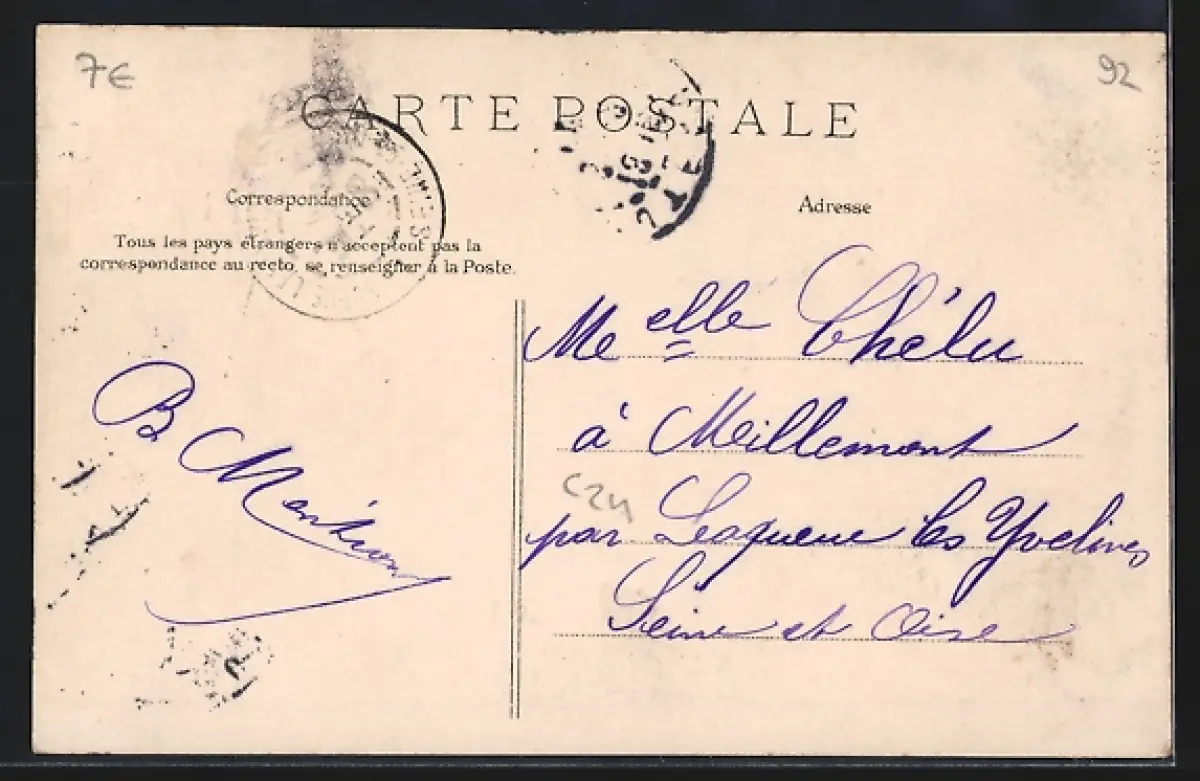 7€
92
CARTE POSTALE
Correspondance
Adresse
Tous les pays étrangers n'acceptent pas la
correspondance au recto, se renseigner à la Poste.
Melle Thélu
à Meillemont
C24
par Leaqueue les Yvelines
Seine et Oise
B Mention